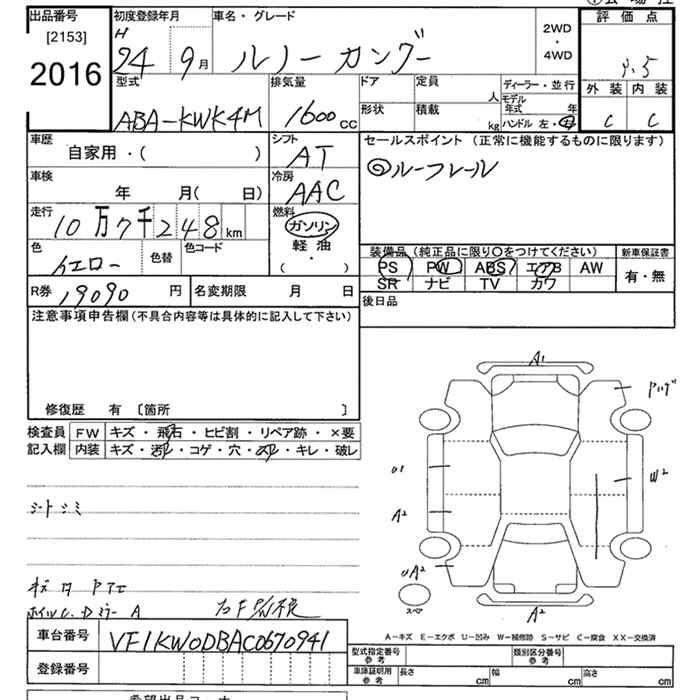 出品番号 初度登録年月 車名・グレード 評価点
[2153] H 2WD
2016 24 9月 ルノー カングー ・ 4WD
型式 排気量 ドア 定員 人 ディーラー・並行 外装 内装
ABA-KWK4M 1600cc 形状 積載 kg モデル年式 年 ハンドル 左・右 C C
車歴 シフト セールスポイント (正常に機能するものに限ります)
自家用・( ) AT ◎ルーフレール
車検 年 月( 日) 冷房 AAC
走行 10万7千248km 燃料 ガソリン
色 イエロー 色替 色コード 軽油 ・( ) 装備品 (純正品に限り〇をつけてください) 新車保証書
PS PW ABS エアB AW 有・無
SR ナビ TV カワ
R券 19090円 名変期限 月 日 後日品
注意事項申告欄(不具合内容等は具体的に記入して下さい)
修復歴 有 〔箇所 〕
検査員 FW キズ・飛石・ヒビ割・リペア跡・×要
記入欄 内装 キズ・汚れ・コゲ・穴・スレ・キレ・破レ
A1
U1 W2
A2
シートシミ
UA2
スペア
A2
ホイルC. Dミラー A
A-キズ E-エクボ U-凹み W-補修跡 S-サビ C-腐食 XX-交換済
車台番号 VF1KW0DBAC0670941
型式指定番号 参考 類別区分番号 参考
登録番号 車庫証明用 参考 長さ cm 幅 cm 高さ cm
希望出品コーナー